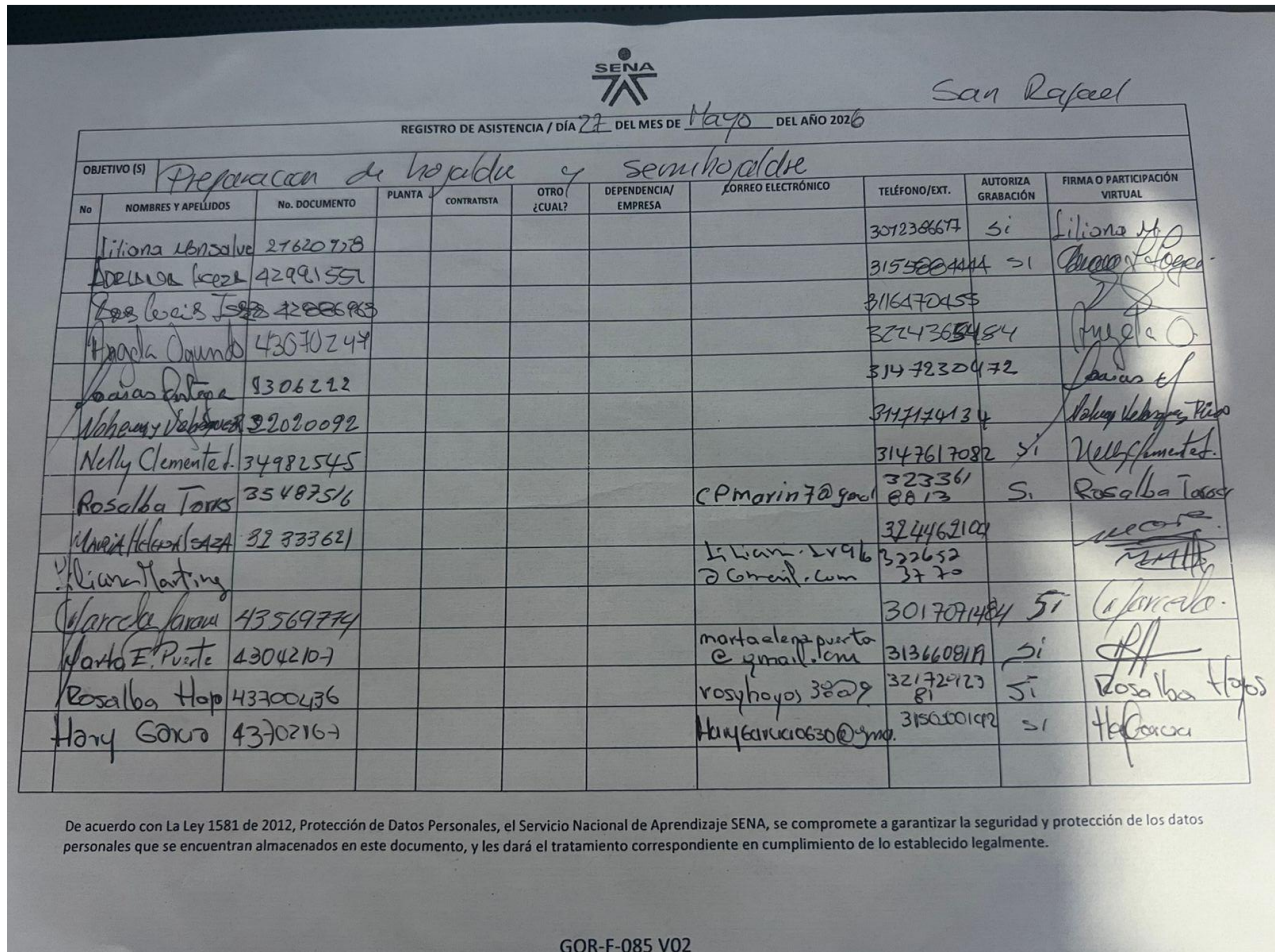 SENA
San Rafael
REGISTRO DE ASISTENCIA / DÍA 27 DEL MES DE Mayo DEL AÑO 2026
OBJETIVO (S) Preparacion de hojaldre y semihojaldre
No NOMBRES Y APELLIDOS No. DOCUMENTO PLANTA CONTRATISTA OTRO ¿CUAL? DEPENDENCIA/ EMPRESA CORREO ELECTRÓNICO TELÉFONO/EXT. AUTORIZA GRABACIÓN FIRMA O PARTICIPACIÓN VIRTUAL
Liliana Monsalve 21620728 3012386677 Si Liliana
42991551 3155884444 SI
3116470455
Angela 43070247 3224365484 Angela O.
3147230472
22020092 3117174134
Nelly Clemente t. 34982545 3147617082 Si Nelly Clemente t.
Rosalba Torres 35487516 cpmarin7@gmail 3233618813 Si Rosalba Torres
32333621 3244462109
Liliana Martinez @Gmail.com 3226523770
Marcela 43569774 3017071484 Si Marcela.
Marta E. Puerta 43042107 martaelenapuerta@gmail.com Si
Rosalba Hoyo 43700436 rosyhoyos 3217292381 Si Rosalba Hoyos
Hary Garcia 43702167 SI HaGarcia
De acuerdo con La Ley 1581 de 2012, Protección de Datos Personales, el Servicio Nacional de Aprendizaje SENA, se compromete a garantizar la seguridad y protección de los datos
personales que se encuentran almacenados en este documento, y les dará el tratamiento correspondiente en cumplimiento de lo establecido legalmente.
GOR-F-085 V02